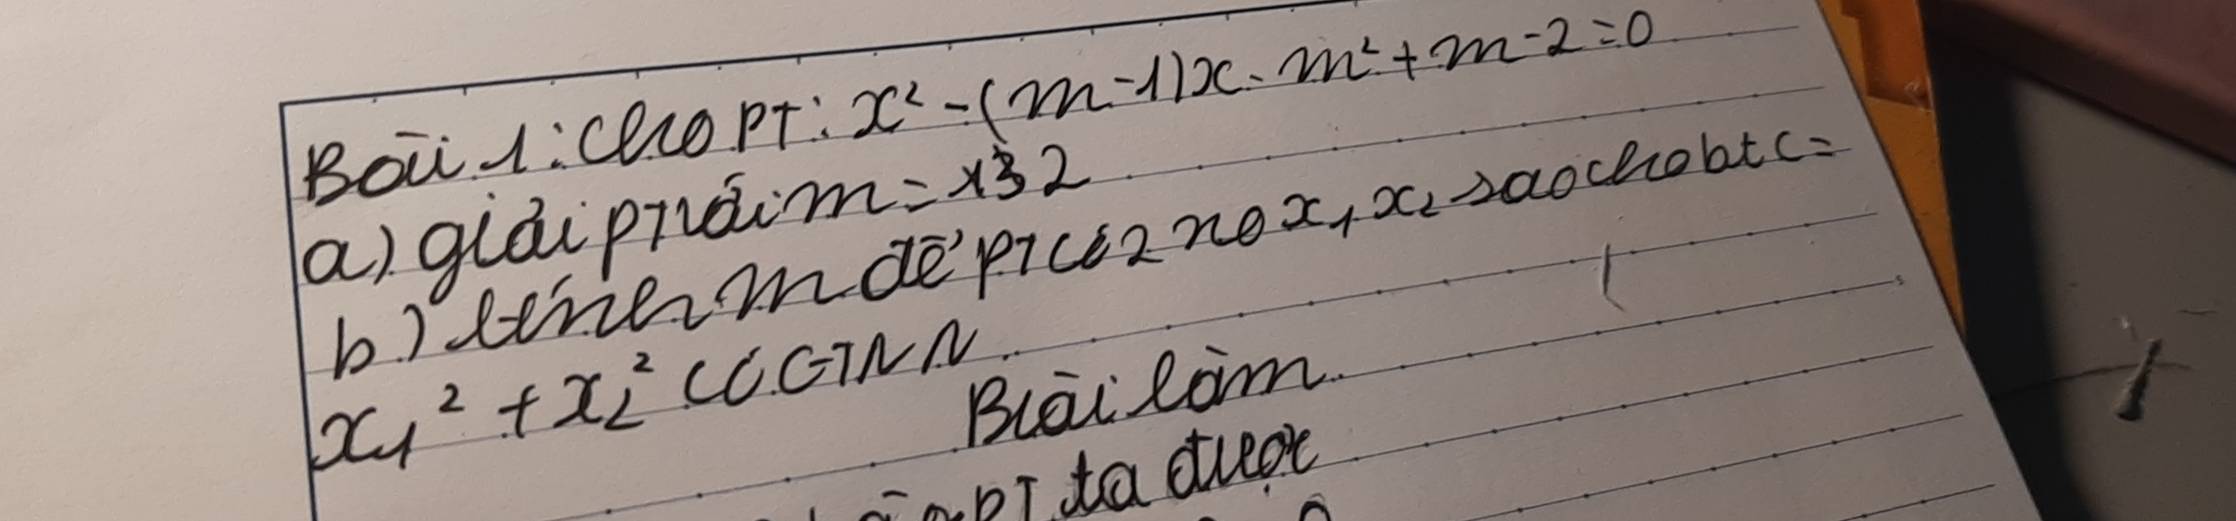 Bài 1: Cho PT: x² - (m-1)x - m² + m - 2 = 0
a) giải PT với m = 2
b) tính m để PT có 2 no x₁ x₂ sao cho bt C =
x₁² + x₂² có GTNN
Bài làm
PT ta được